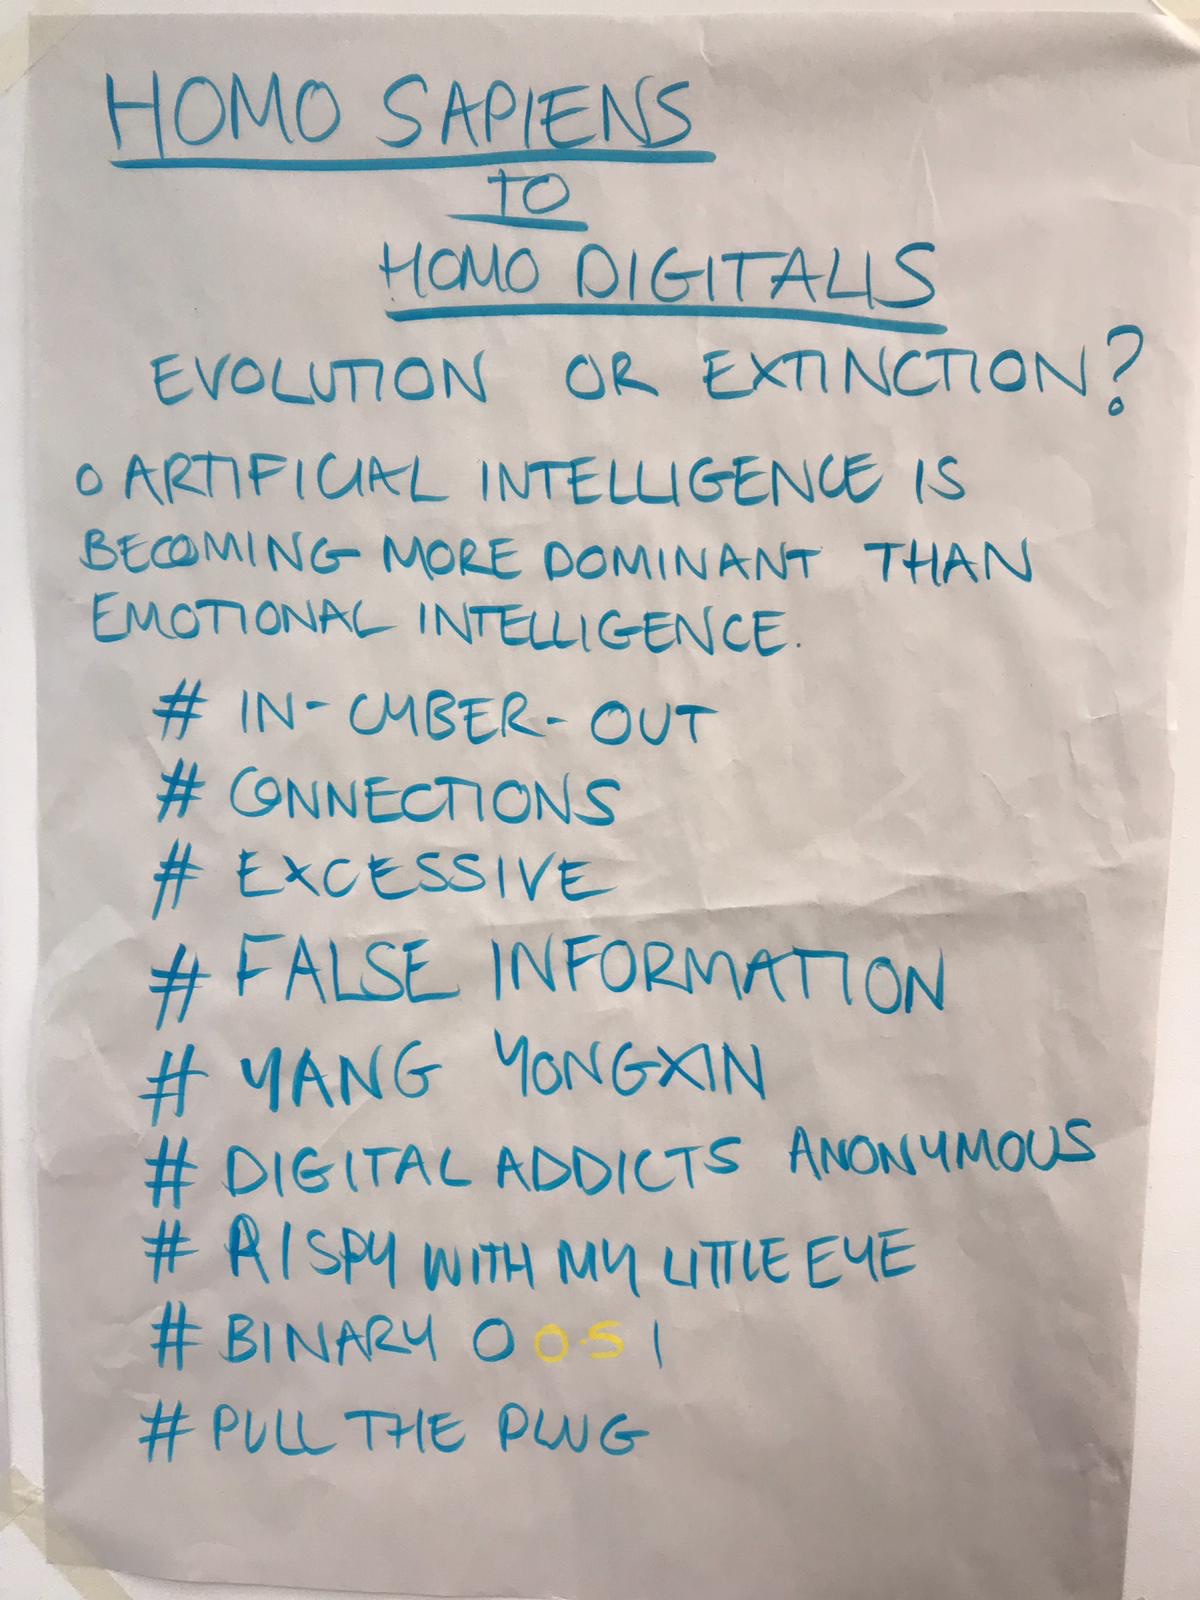 HOMO SAPIENS
TO
HOMO DIGITALIS
EVOLUTION OR EXTINCTION?
o ARTIFICIAL INTELLIGENCE IS
BECOMING MORE DOMINANT THAN
EMOTIONAL INTELLIGENCE.
# IN-CYBER-OUT
# CONNECTIONS
# EXCESSIVE
# FALSE INFORMATION
# YANG YONGXIN
# DIGITAL ADDICTS ANONYMOUS
# I SPY WITH MY LITTLE EYE
# BINARY 0 0.5 1
# PULL THE PLUG